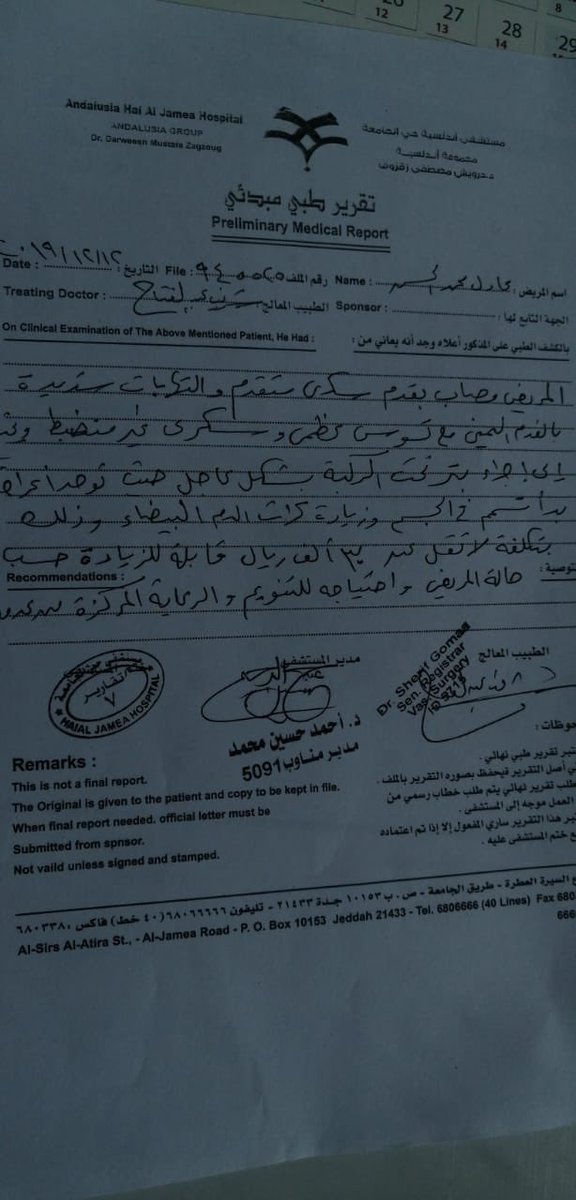 27
28
29
12
13
14
8
Andalusia Hai Al Jamea Hospital
ANDALUSIA GROUP
Dr. Darweesh Mustafa Zagzoug
مستشفى أندلسية حي الجامعة
مجموعة أندلسية
د.درويش مصطفى زقزوق
تقرير طبي مبدئي
Preliminary Medical Report
اسم المريض : عادل محمد Name : رقم الملف File : التاريخ : ٢٠١٩/١٢/١٢ Date :
الجهة التابع لها : Sponsor : الطبيب المعالج Treating Doctor :
بالكشف الطبي على المذكور أعلاه وجد أنه يعاني من : On Clinical Examination of The Above Mentioned Patient, He Had :
المريض مصاب بقدم سكرى متقدم والتهابات شديدة
بالقدم اليمنى مع تسوس عظمى وسكرى غير منضبط
إلى إجراء بتر تحت الركبة بشكل عاجل حيث توجد أعراض
بدأ تسمم في الجسم وزيادة كرات الدم البيضاء وذلك
بتكلفة لا تقل عن ٣٠ ألف ريال قابلة للزيادة حسب
توصية : Recommendations :
حالة المريض واحتياجه للتنويم والرعاية المركزة
الطبيب المعالج
Dr Sherif Gomaa
Sen. Registrar
Vas. Surgery
مدير المستشفى
د. أحمد حسين محمد
مدير مناوب 5091
تقارير
٧
HAI AL JAMEA HOSPITAL
Remarks :
This is not a final report.
The Original is given to the patient and copy to be kept in file.
When final report needed. official letter must be
Submitted from spnsor.
Not vaild unless signed and stamped.
حوظات :
تبر تقرير طبي نهائي .
ي أصل التقرير فيحفظ بصوره التقرير بالملف .
طلب تقرير نهائي يتم طلب خطاب رسمي من
العمل موجه إلى المستشفى .
تبر هذا التقرير ساري المفعول إلا إذا تم اعتماده
ع ختم المستشفى عليه .
ع السيرة العطرة - طريق الجامعة - ص . ب ١٠١٥٣ جدة ٢١٤٣٣ - تليفون ٦٨٠٦٦٦٦ (٤٠ خط) فاكس
Al-Sirs Al-Atira St., - Al-Jamea Road - P. O. Box 10153 Jeddah 21433 - Tel. 6806666 (40 Lines) Fax 680
666